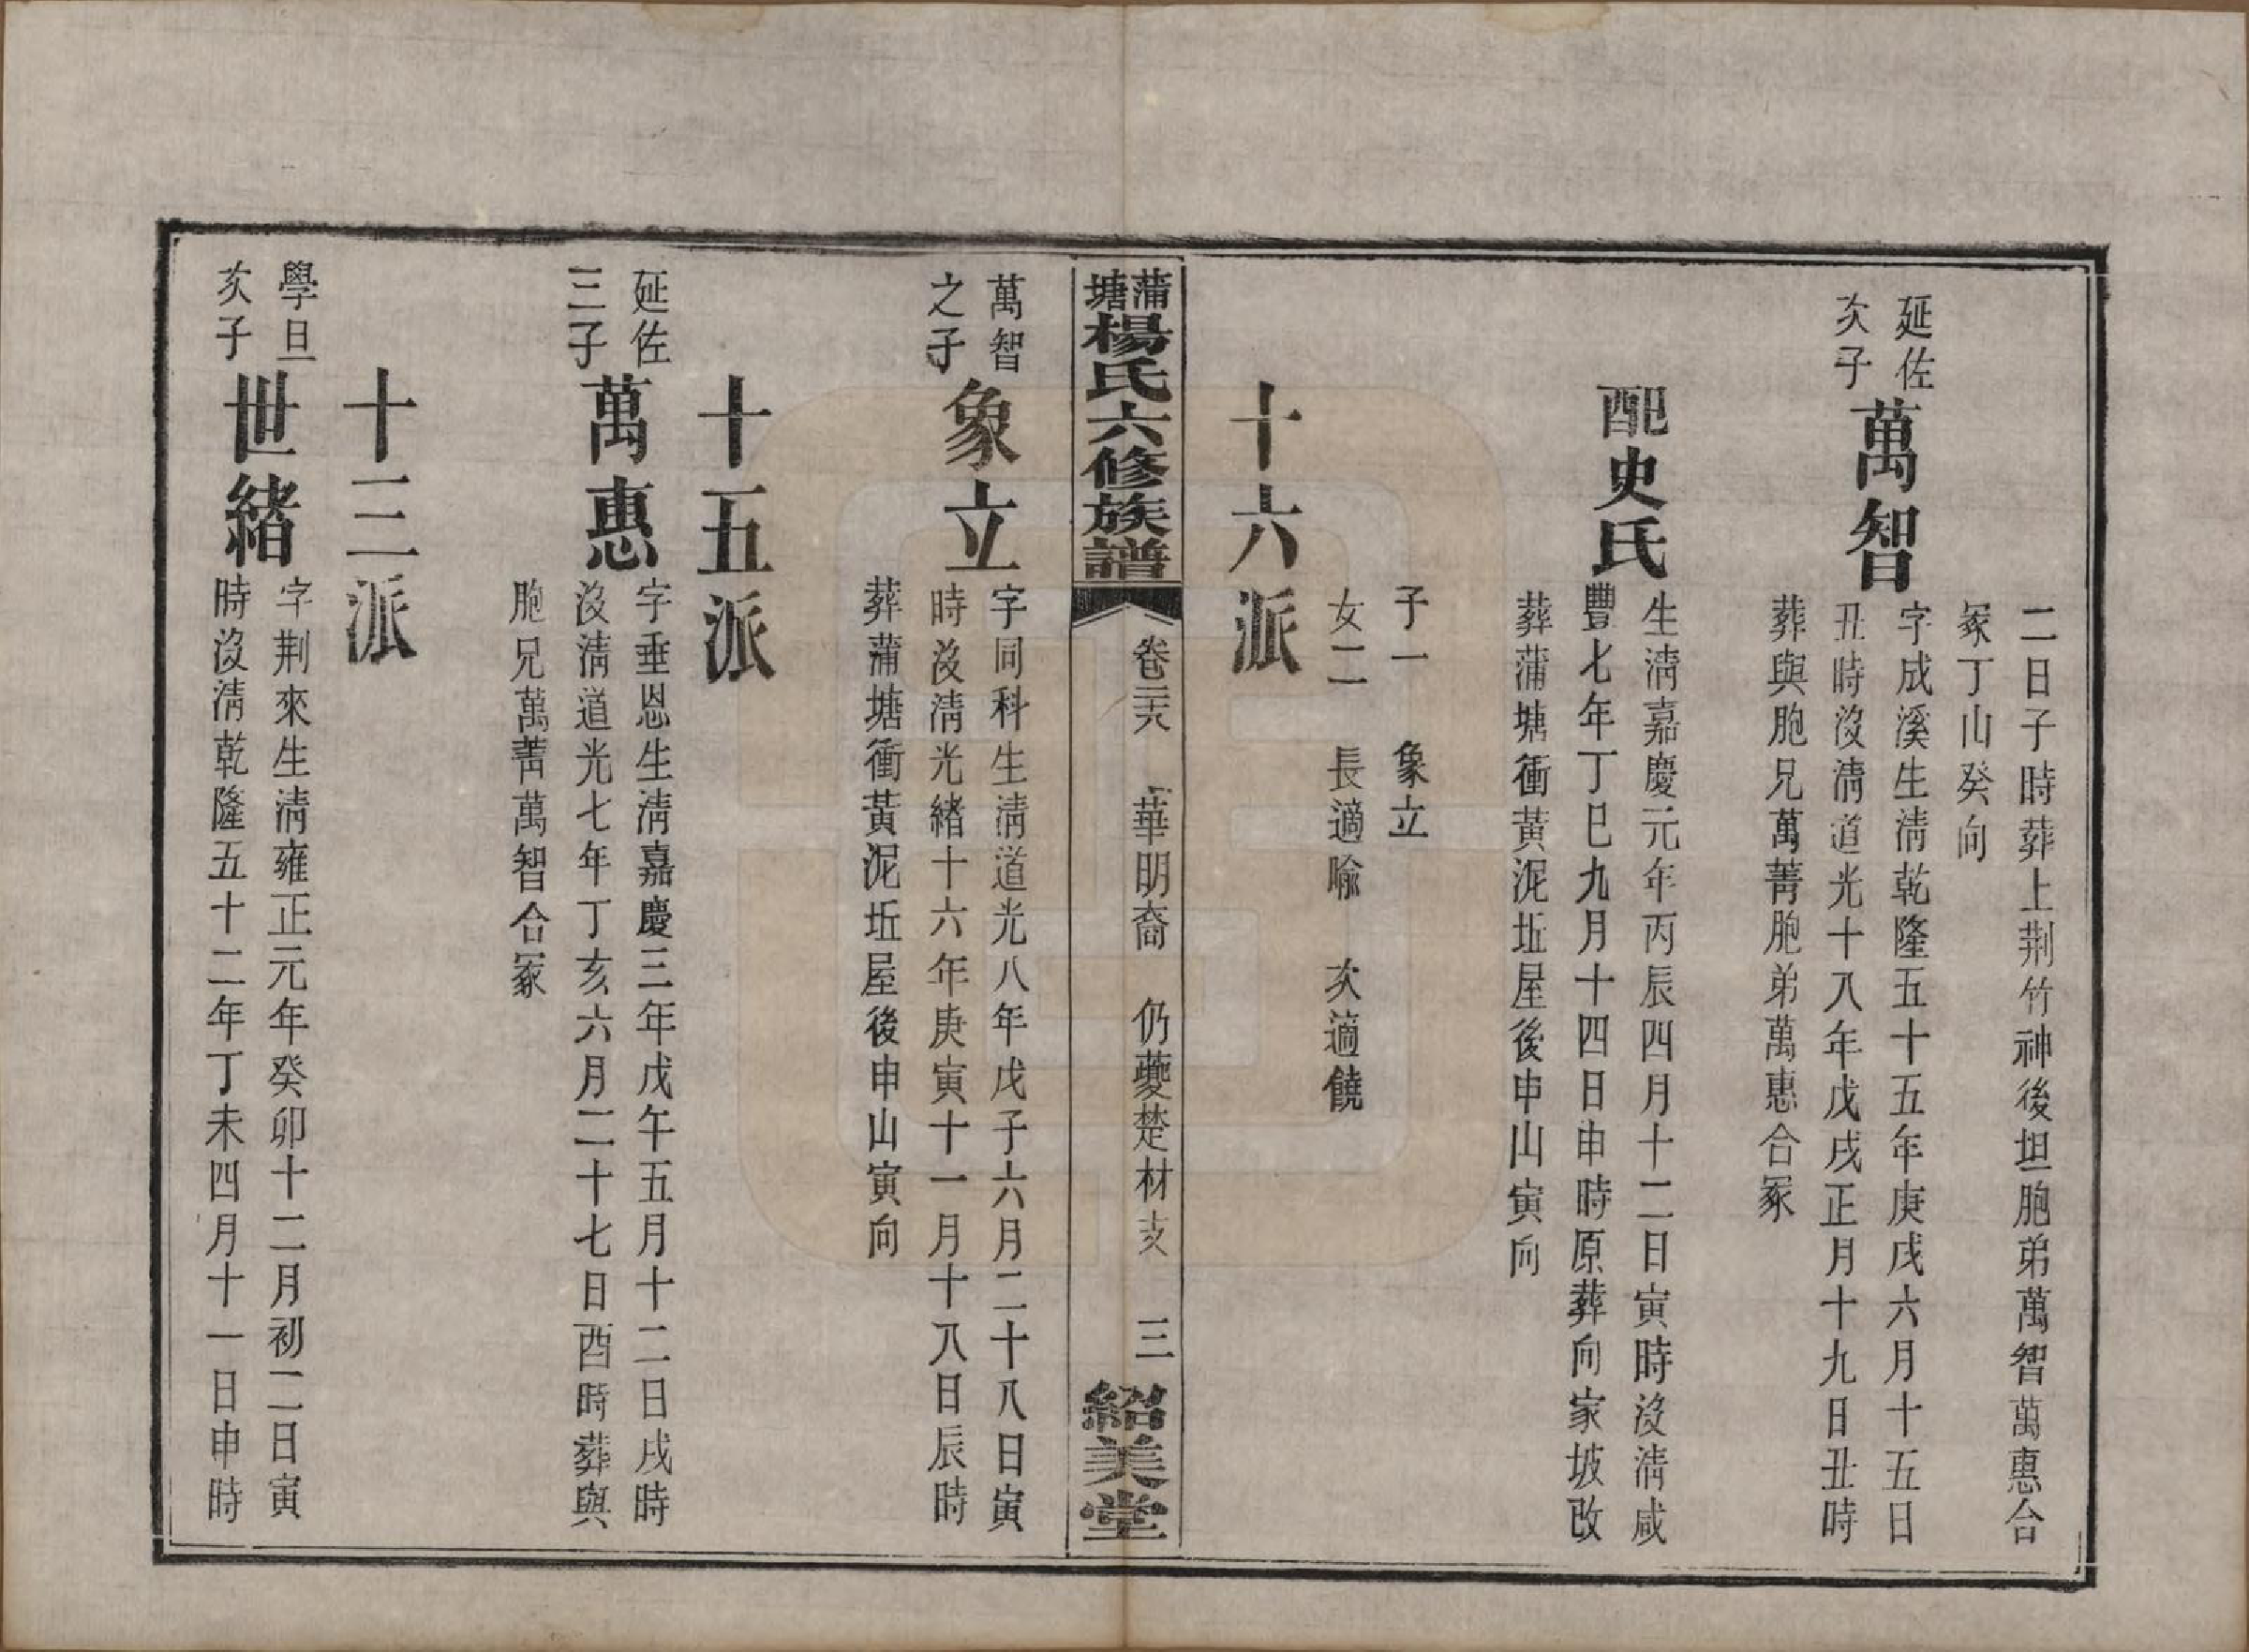 二日子時葬上荆竹神後坦胞弟萬智萬惠合
冢丁山癸向
延佐
次子
萬智
字成溪生淸乾隆五十五年庚戌六月十五日
丑時沒淸道光十八年戊戌正月十九日丑時
葬與胞兄萬菁胞弟萬惠合冢
配史氏
生淸嘉慶元年丙辰四月十二日寅時沒淸咸
豐七年丁巳九月十四日申時原葬向家坡改
葬蒲塘衝黃泥坵屋後申山寅向
子一　象立
女二　長適喩　次適饒
十六派
蒲塘楊氏六修族譜
卷三六　華明裔　仍夔楚材支　三
紹美堂
萬智
之子
象立
字同科生淸道光八年戊子六月二十八日寅
時沒淸光緒十六年庚寅十一月十八日辰時
葬蒲塘衝黃泥坵屋後申山寅向
十五派
延佐
三子
萬惠
字垂恩生淸嘉慶三年戊午五月十二日戌時
沒淸道光七年丁亥六月二十七日酉時葬與
胞兄萬菁萬智合冢
十三派
學旦
次子
世緒
字荆來生淸雍正元年癸卯十二月初二日寅
時沒淸乾隆五十二年丁未四月十一日申時